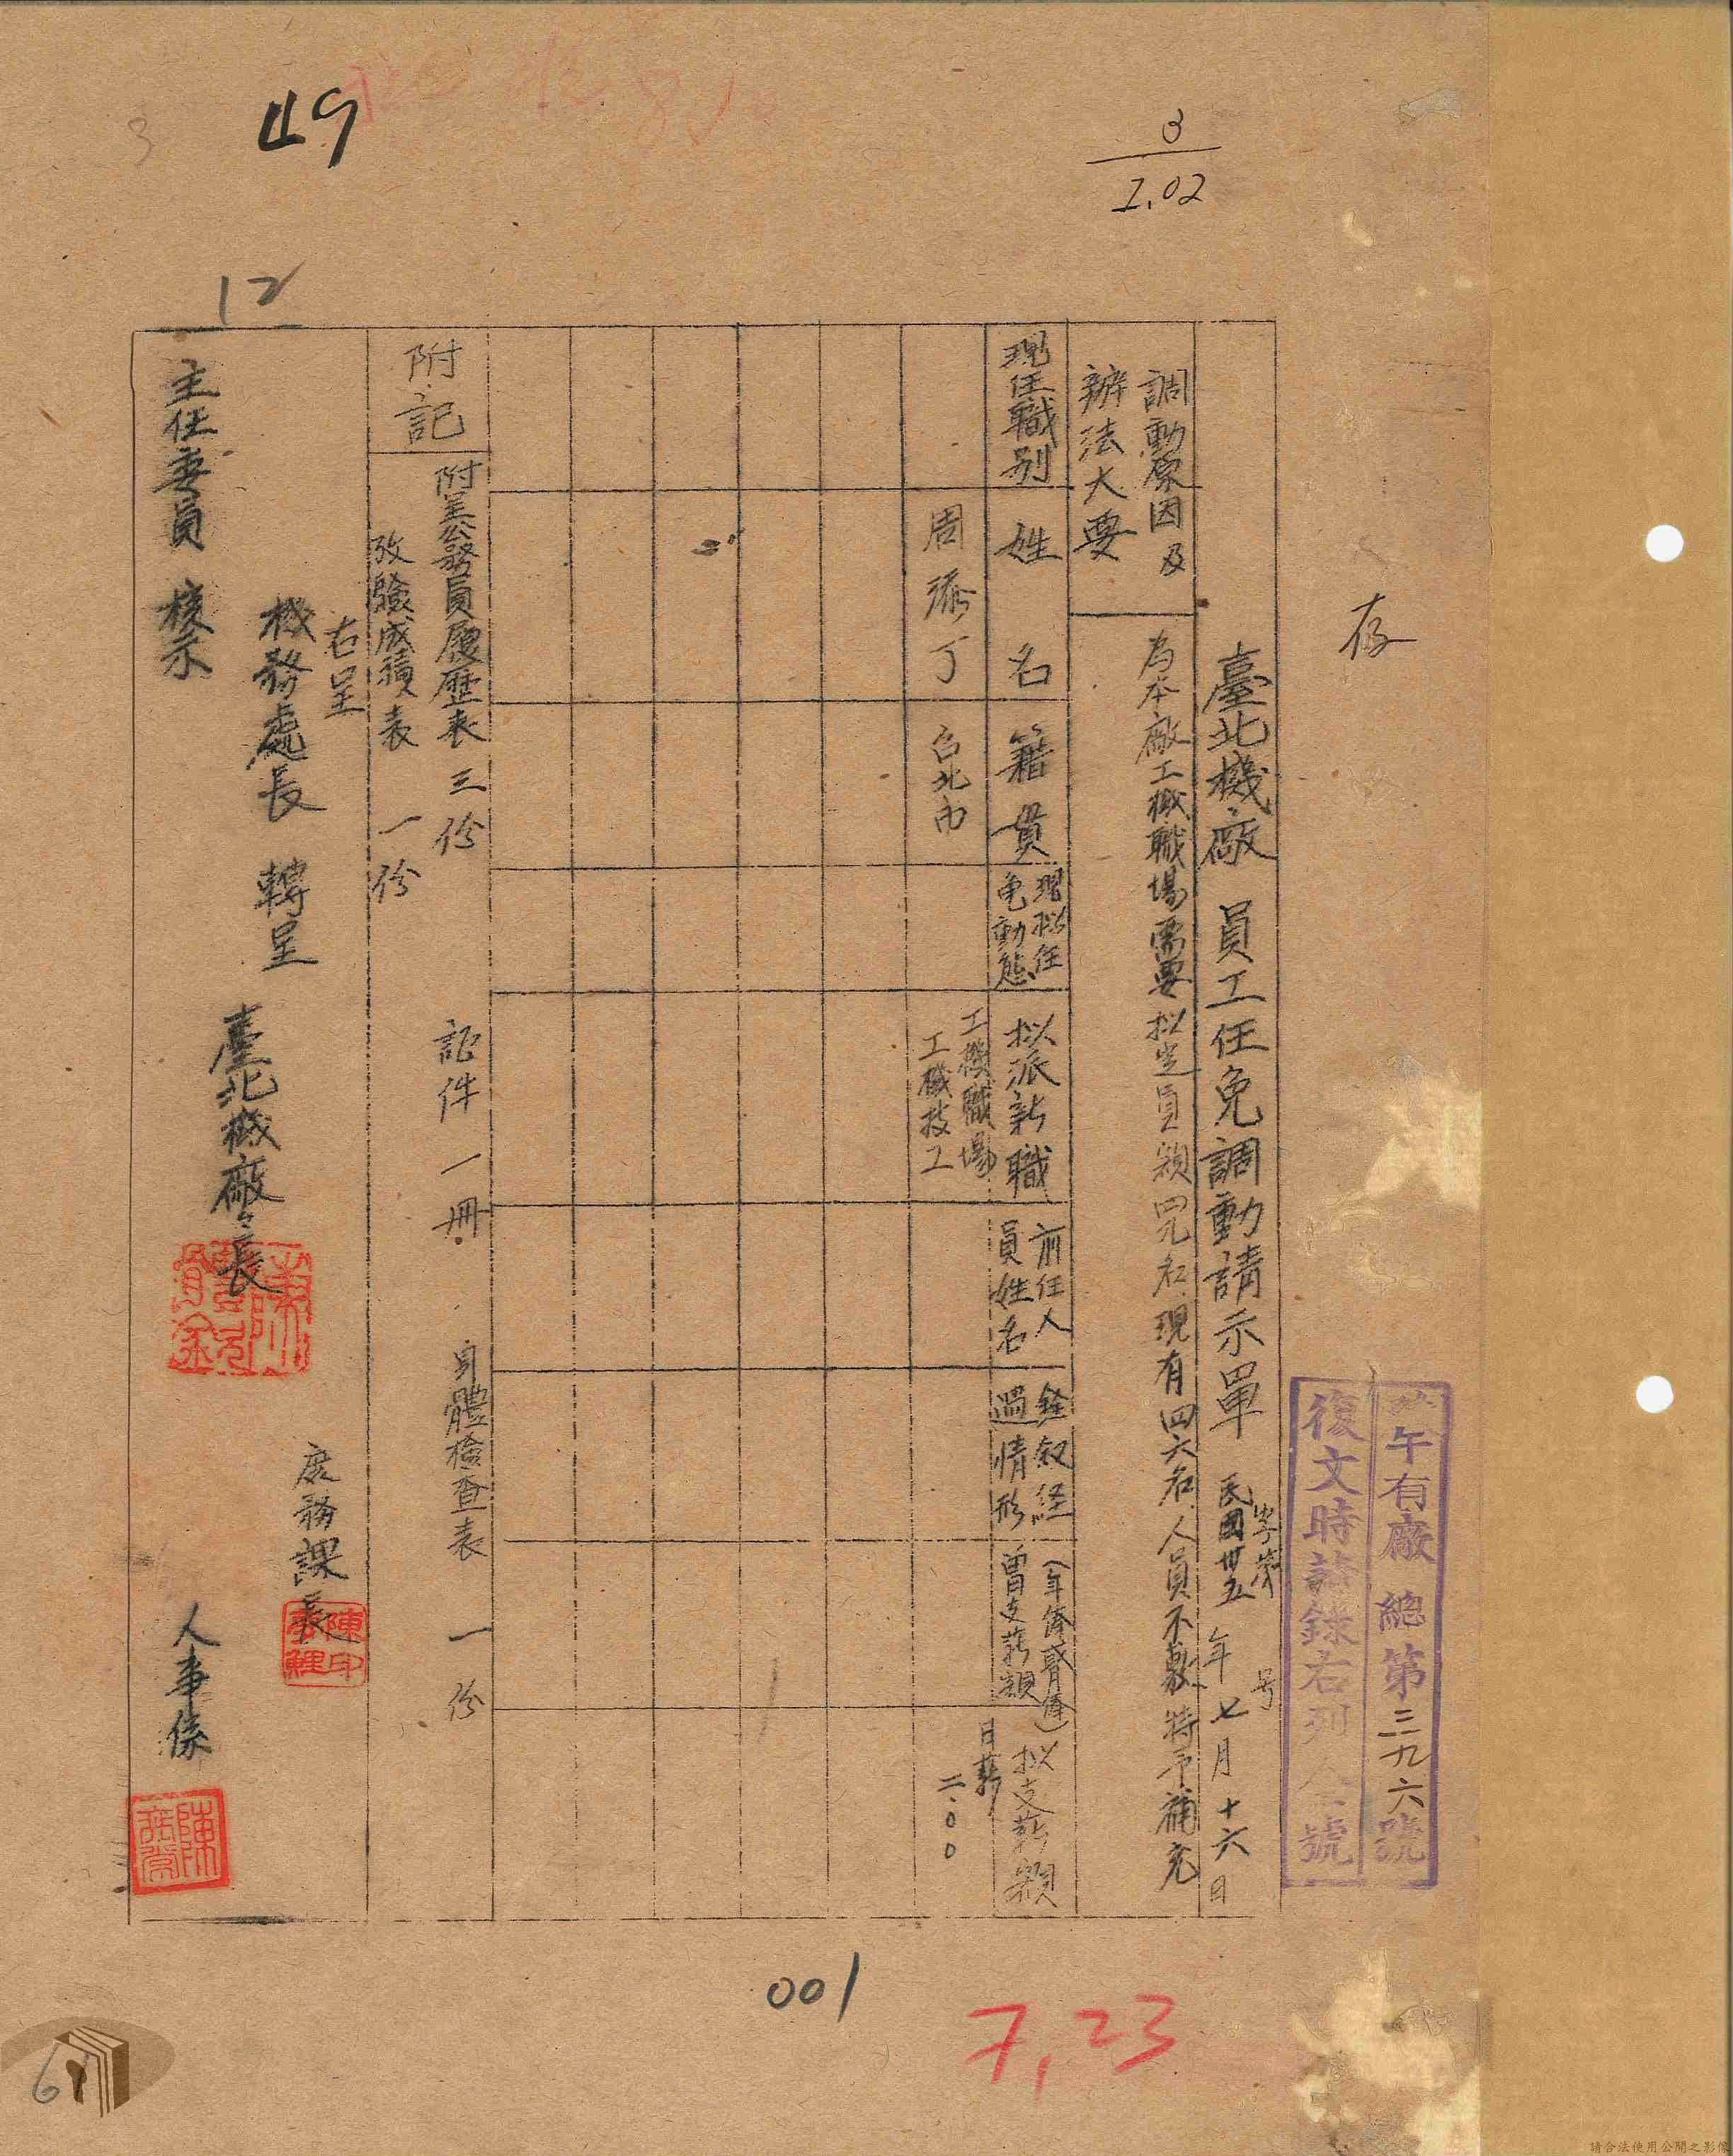 49
3
1.02
12
存
午有廠總第三九六號
復文時請錄右列全號
臺北機廠 員工任免調動請示單
字第 号
民國卅五年七月十六日
調動原因及
辦法大要
為本廠工機職場需要拟定員額 名現有四六名人員不敷特予補充
現任職别
姓名
籍貫
現拟任
免動態
拟派新職
前任人
員姓名
銓叙経
過情形
(年俸或月俸)
曽支薪額
拟支薪額
周添丁
台北市
工機職場
工機技工
日薪
二.00
附記
附呈公務員履歷表 三份
証件 一冊
身體檢查表 一份
攷驗成績表 一份
右呈
機務處長 轉呈
主任委員 核示
臺北機廠々長
庶務課長
陳印
人事係
陳
001
7,23
請合法使用公開之影像